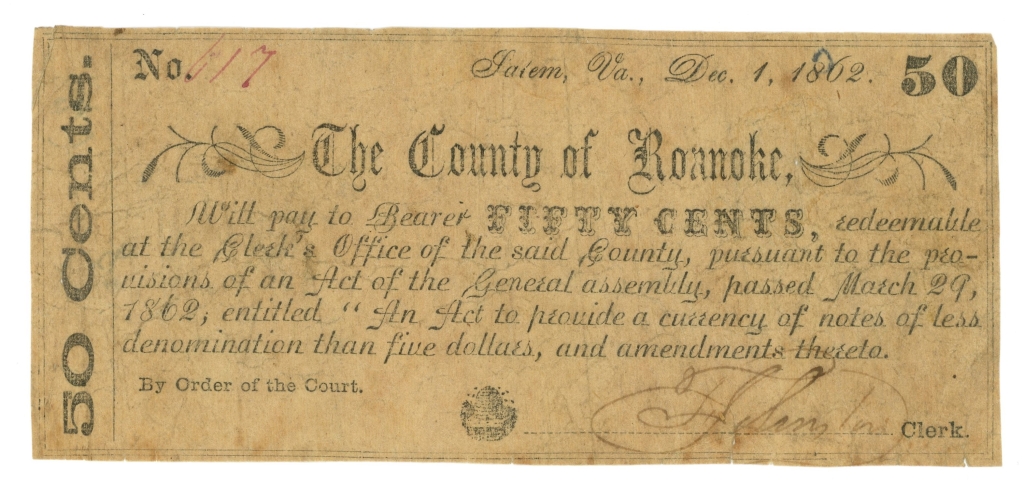 50 Cents.
No. 617
Salem, Va., Dec. 1, 1862.
50
The County of Roanoke,
Will pay to Bearer FIFTY CENTS, redeemable
at the Clerk's Office of the said County, pursuant to the pro-
visions of an Act of the General assembly, passed March 29,
1862; entitled "An Act to provide a currency of notes of less
denomination than five dollars, and amendments thereto.
By Order of the Court.
Clerk.